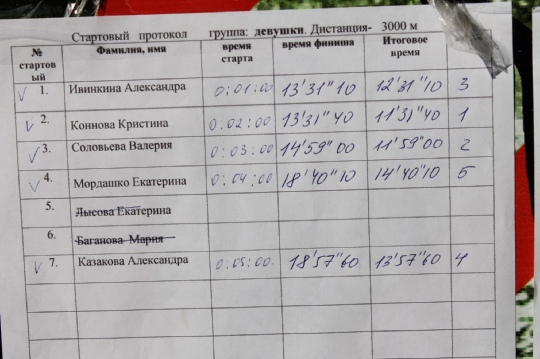 Стартовый протокол группа: девушки. Дистанция- 3000 м
№ стартовый Фамилия, имя время старта время финиша Итоговое время
1. Ивинкина Александра 0:01:00 13'31"10 12'31"10 3
2. Коннова Кристина 0:02:00 13'31"40 11'31"40 1
3. Соловьева Валерия 0:03:00 14'59"00 11'59"00 2
4. Мордашко Екатерина 0:04:00 18'40"10 14'40"10 5
5. Лысова Екатерина
6. Баганова Мария
7. Казакова Александра 0:05:00. 18'57"60 13'57"60 4